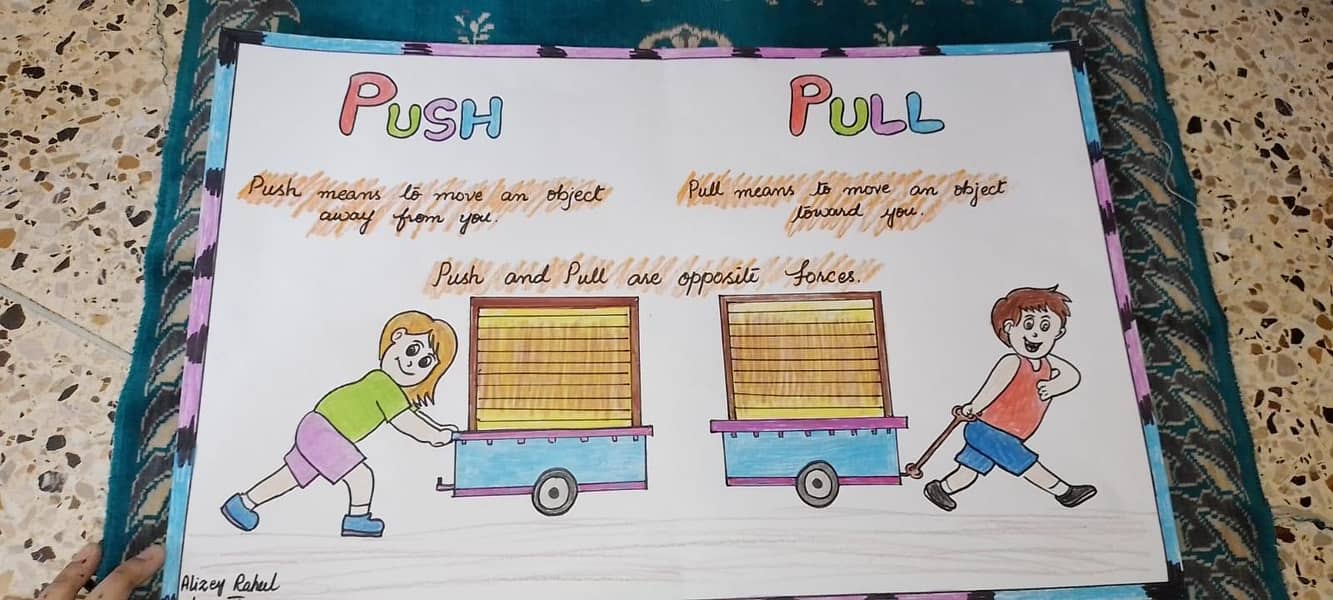 PUSH
PULL
Push means to move an object
away from you.
Pull means to move an object
toward you.
Push and Pull are opposite forces.
Alizey Raheel